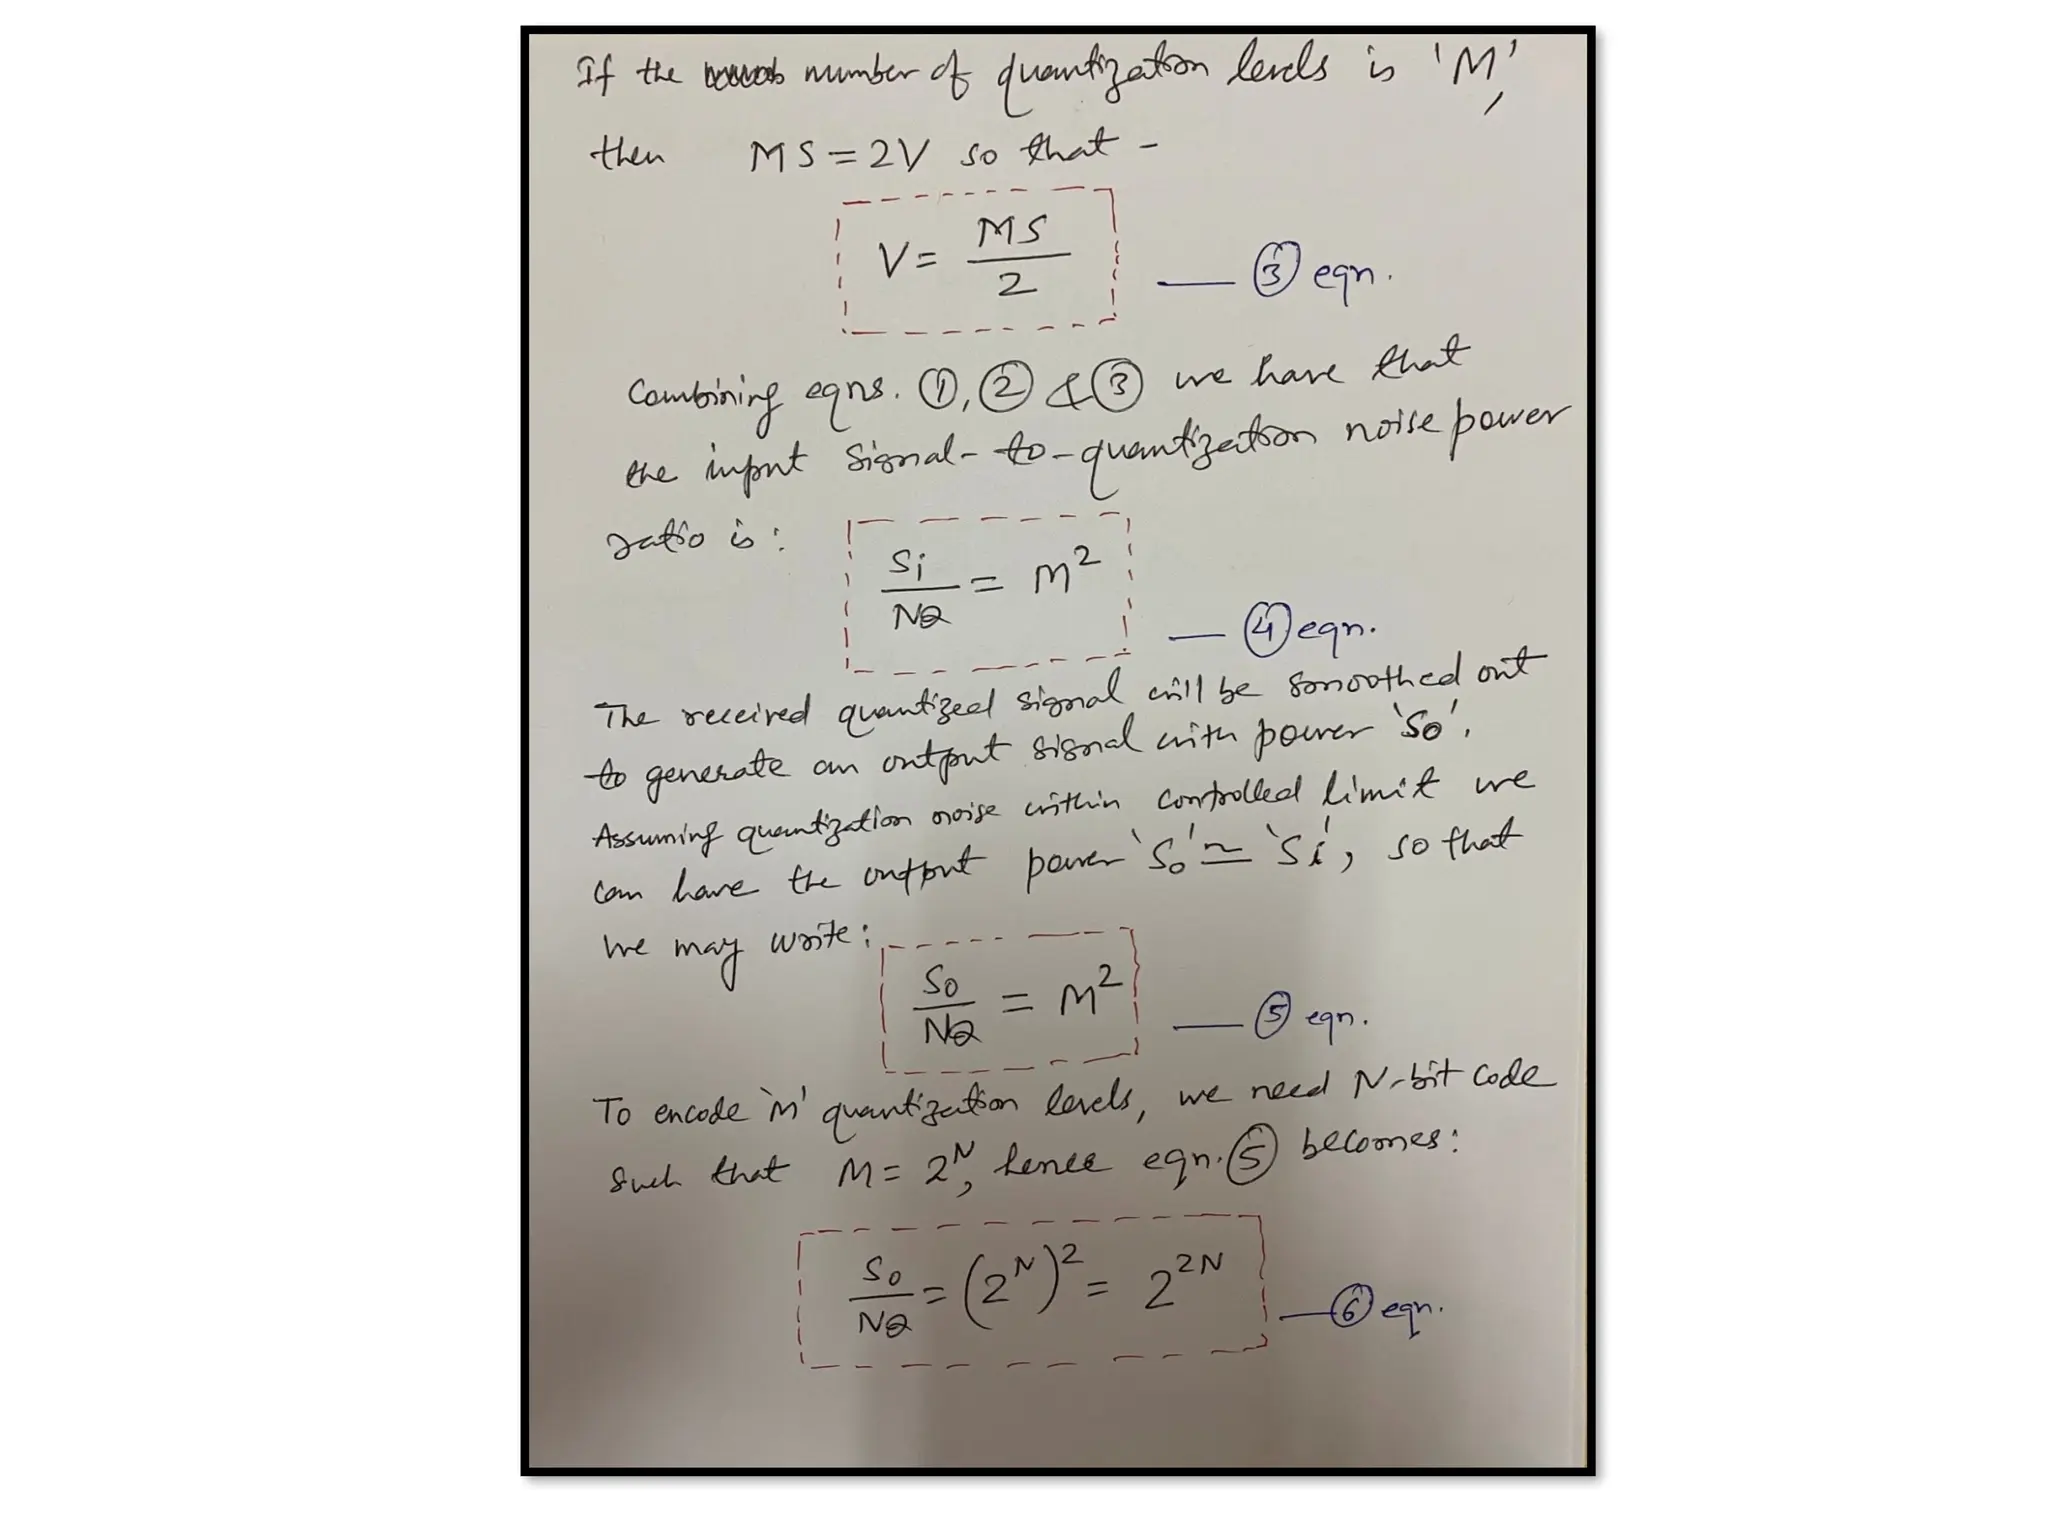 If the number of quantization levels is 'M',
then MS = 2V so that -
V = MS/2 — ③ eqn.
Combining eqns. ①, ② & ③ we have that
the input signal-to-quantization noise power
ratio is:
Si/NQ = M² — ④ eqn.
The received quantized signal will be smoothed out
to generate an output signal with power 'So'.
Assuming quantization noise within controlled limit we
can have the output power 'So' ≃ 'Si', so that
we may write:
So/NQ = M² — ⑤ eqn.
To encode 'M' quantization levels, we need N-bit code
such that M = 2^N, hence eqn. ⑤ becomes:
So/NQ = (2^N)² = 2^2N — ⑥ eqn.